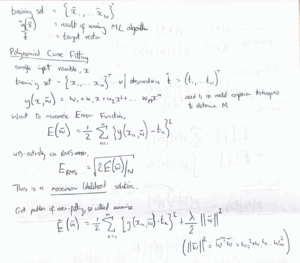 training set = {x̄₁, ... x̄_N}
ȳ(x̄) = result of running ML algorithm
t̄ = target vector
Polynomial Curve Fitting
single input variable, x
training set = {x₁, ... x_N}ᵀ w/ observations t̄ = (t₁, ... t_N)ᵀ
y(x, w̄) = w₀ + w₁x + w₂x² + ... w_M x^M ← need to use model comparison techniques
to determine M
Want to minimise Error Function,
E(w̄) = 1/2 Σ_{n=1}^{N} {y(x_n, w̄) - t_n}²
RMS error,
E_RMS = √(2E(w̄)/N)
This is a maximum likelihood solution.
Get problem of over-fitting, so instead minimise
Ẽ(w̄) = 1/2 Σ_{n=1}^{N} {y(x_n, w̄) - t_n}² + λ/2 ||w̄||²
(||w̄||² = w̄ᵀw̄ = w₀² + w₁² + ... w_M²)